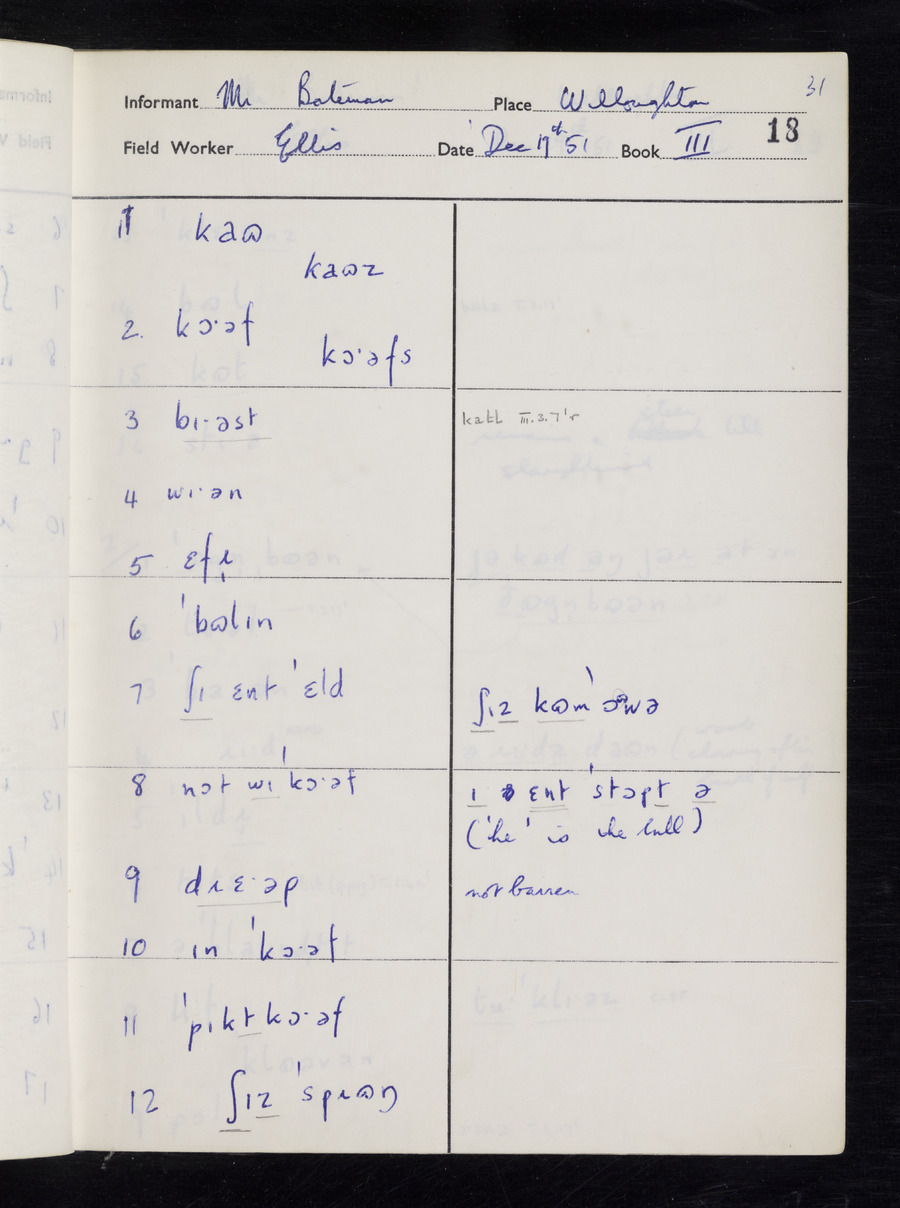 31
Informant Mr Bateman Place Willoughton
Field Worker Ellis Date Dec 19th 51 Book III 18
1 kaɷ
kaɷz
2. kɔ·əf
kɔ·əfs
3 bɪ·əst
katl III.3.7 'r
4 wɪ·ən
5 ɛfɹ̩
6 ˈbɷlɪn
7 ʃɪ ɛnt ˈɛld
ʃɪz kɷmˈ ɔwə
8 nɔt wɪ ˈkɔ·əf
ɪ ɛnt ˈstɔpt ə
('he' is the bull)
9 dɹɛ·əp
not barren
10 ɪn ˈkɔ·əf
11 ˈpɪkt kɔ·əf
12 ʃɪz ˈspɹɷŋ